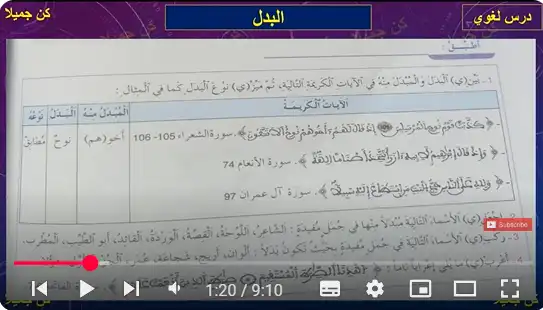 كن جميلا
البدل
درس لغوي
أطبق :
1 - بين(ي) البدل و المبدل منه في الآيات الكريمة التالية، ثم ميز(ي) نوع البدل كما في المثال :
الآيات الكريمة المبدل منه البدل نوعه
- ﴿ كذبت قوم نوح المرسلين 105 إذ قال لهم أخوهم نوح ألا تتقون ﴾. سورة الشعراء 105- 106 أخو(هم) نوح مطابق
- ﴿ وإذ قال إبراهيم لأبيه آزر أتتخذ أصناما آلهة ﴾. سورة الأنعام 74
- ﴿ ولله على الناس حج البيت من استطاع إليه سبيلا ﴾. سورة آل عمران 97
2 - الأسماء التالية مبدلا منها في جمل مفيدة : الشاعر، اللوحة، القصة، الوردة، القائد، أبو الطيب، المطرب.
3 - ركب(ي) الأسماء التالية في جمل مفيدة بحيث تكون بدلا : ألوان، أريج، شجاعة،
4 - أعرب(ي) ما يلي إعرابا تاما : ﴿ اهدنا الصراط المستقيم
Subscribe
1:20 / 9:10
كن جميلا